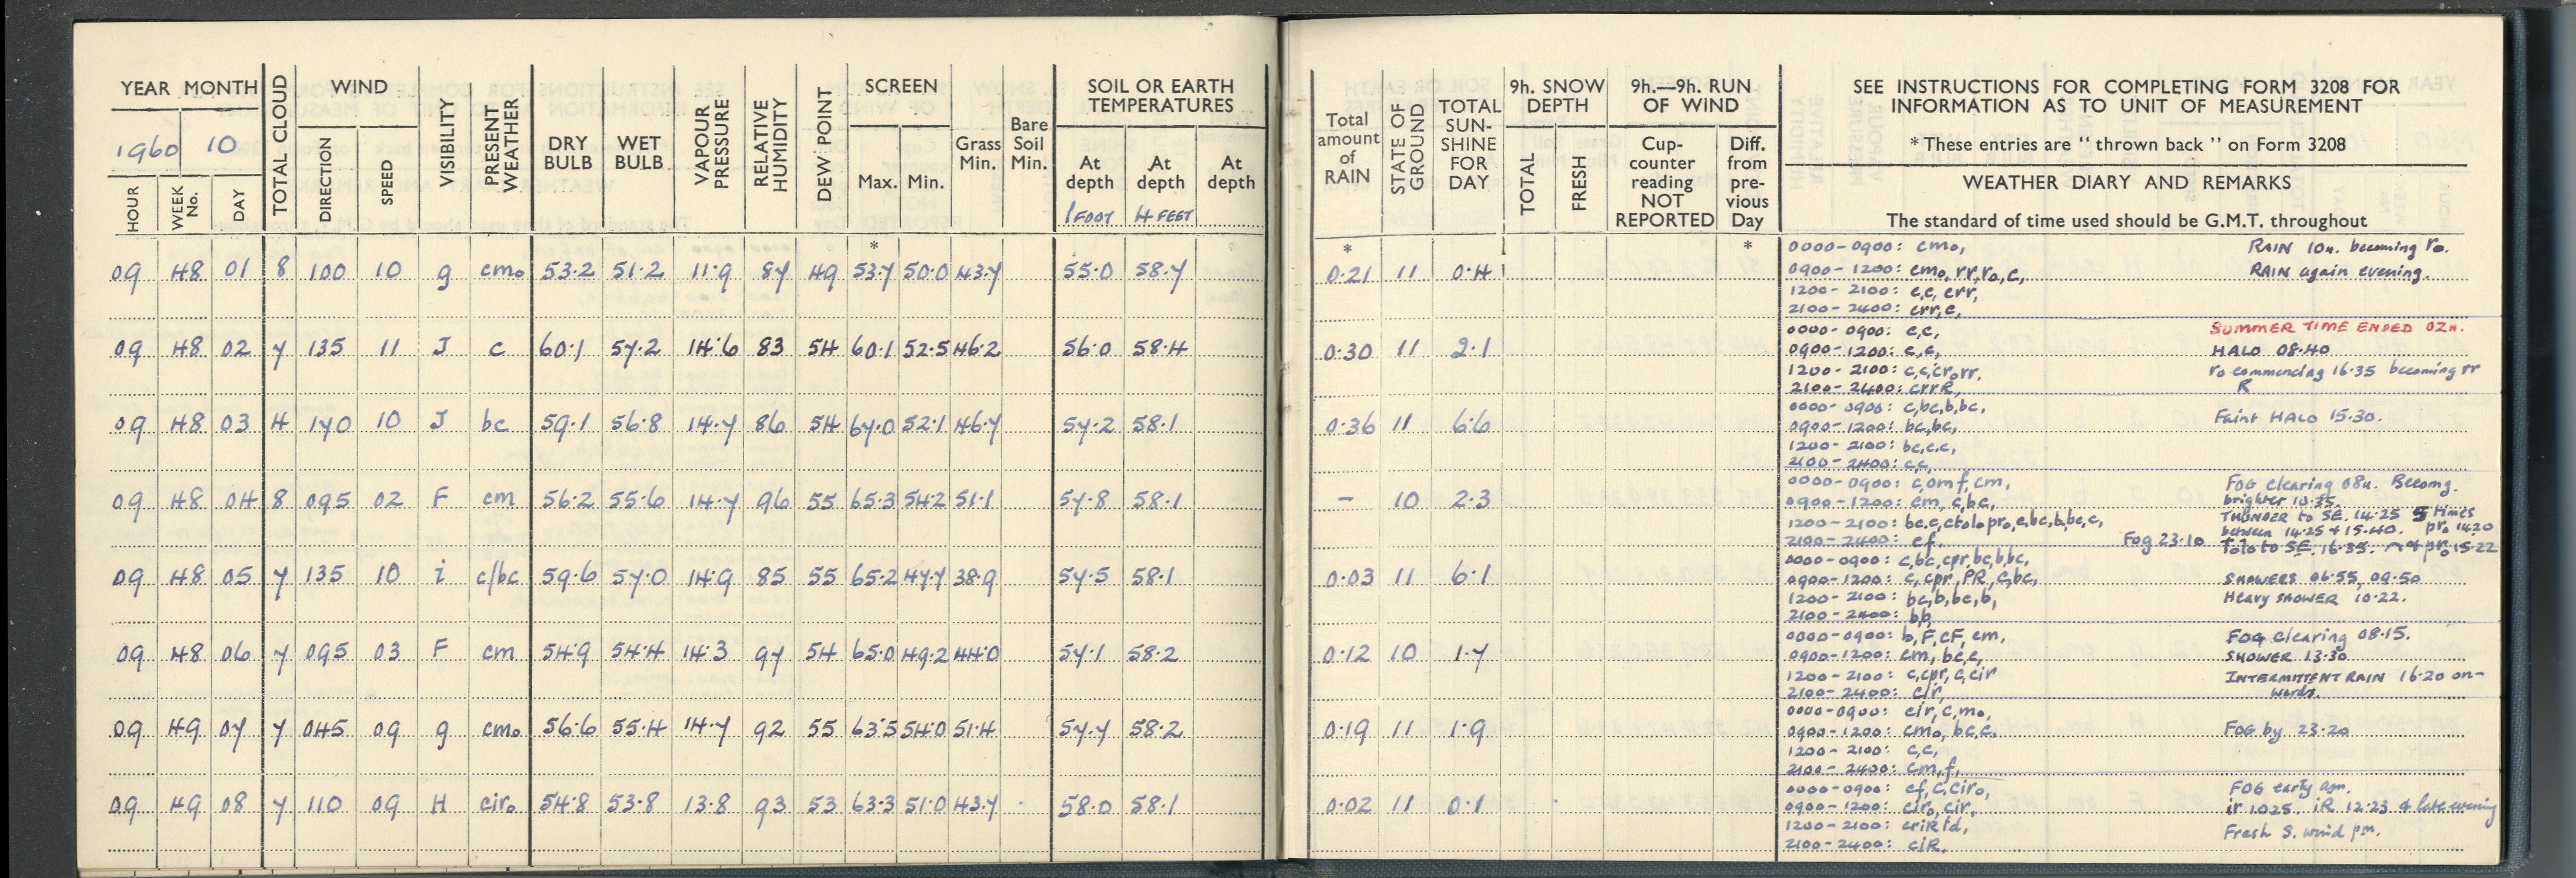 YEAR MONTH
1960 10
HOUR
WEEK No.
DAY
TOTAL CLOUD
WIND
DIRECTION
SPEED
VISIBILITY
PRESENT WEATHER
DRY BULB
WET BULB
VAPOUR PRESSURE
RELATIVE HUMIDITY
DEW POINT
SCREEN
Max. Min.
Grass Min.
Bare Soil Min.
SOIL OR EARTH TEMPERATURES
At depth 1 FOOT
At depth 4 FEET
At depth
*
09 48 01 8 100 10 g cm₀ 53·2 51·2 11·9 87 49 53·7 50·0 43·7 55·0 58·7
09 48 02 7 135 11 J c 60·1 57·2 14·6 83 54 60·1 52·5 46·2 56·0 58·4
09 48 03 4 170 10 J bc 59·1 56·8 14·7 86 54 67·0 52·1 46·7 57·2 58·1
09 48 04 8 095 02 F cm 56·2 55·6 14·7 96 55 65·3 54·2 51·1 57·8 58·1
09 48 05 7 135 10 i c/bc 59·6 57·0 14·9 85 55 65·2 47·7 38·9 57·5 58·1
09 48 06 7 095 03 F cm 54·9 54·4 14·3 97 54 65·0 49·2 44·0 57·1 58·2
09 49 07 7 045 09 g cm₀ 56·6 55·4 14·7 92 55 63·5 54·0 51·4 57·7 58·2
09 49 08 7 110 09 H cir₀ 54·8 53·8 13·8 93 53 63·3 51·0 43·7 58·0 58·1
Total amount of RAIN
STATE OF GROUND
TOTAL SUN-SHINE FOR DAY
9h. SNOW DEPTH
TOTAL
FRESH
9h.—9h. RUN OF WIND
Cup-counter reading NOT REPORTED
Diff. from pre-vious Day
SEE INSTRUCTIONS FOR COMPLETING FORM 3208 FOR
INFORMATION AS TO UNIT OF MEASUREMENT
* These entries are "thrown back" on Form 3208
WEATHER DIARY AND REMARKS
The standard of time used should be G.M.T. throughout
* *
0·21 11 0·4
0000-0900: cm₀, RAIN 10h. becoming r₀.
0900-1200: cm₀, rr, r₀, c, RAIN again evening.
1200-2100: c,c, crr,
2100-2400: crr,c,
0·30 11 2·1
0000-0900: c,c, SUMMER TIME ENDED 02h.
0900-1200: c,c, HALO 08·40
1200-2100: c,c,cr₀,rr, r₀ commencing 16·35 becoming rr
2100-2400: crrR, R
0·36 11 6·6
0000-0900: c,bc,b,bc, Faint HALO 15·30.
0900-1200: bc,bc,
1200-2100: bc,c,c,
2100-2400: c,c,
- 10 2·3
0000-0900: c,omf,cm, FOG clearing 08h. Becomg. brighter 10·35.
0900-1200: cm, c,bc, THUNDER to SE. 14·25 5 times
1200-2100: bc,c,ctlo,pr₀,c,bc,b,bc,c, between 14·25 + 15·40. pr₀ 1420
2100-2400: cf. Fog 23·10 to SE. 16·35. + pr₀ 15·22
0·03 11 6·1
0000-0900: c,bc,cpr,bc,b,bc,
0900-1200: c,cpr,PR,c,bc, SHOWERS 06·55, 09·50
1200-2100: bc,b,bc,b, Heavy SHOWER 10·22.
2100-2400: bb,
0·12 10 1·7
0000-0900: b,F,cF,cm, FOG clearing 08·15.
0900-1200: cm, bc,c, SHOWER 13·30
1200-2100: c,cpr,c,cir INTERMITTENT RAIN 16·20 on-
2100-2400: cir, wards.
0·19 11 1·9
0000-0900: cir,c,m₀,
0900-1200: cm₀, bc,c, FOG by 23·20
1200-2100: c,c,
2100-2400: cm,f,
0·02 11 0·1
0000-0900: cf,c,cir₀, FOG early am.
0900-1200: cir₀,cir, ir 1025. iR 12·23 & late evening
1200-2100: criRtd, Fresh S. wind pm.
2100-2400: ciR.